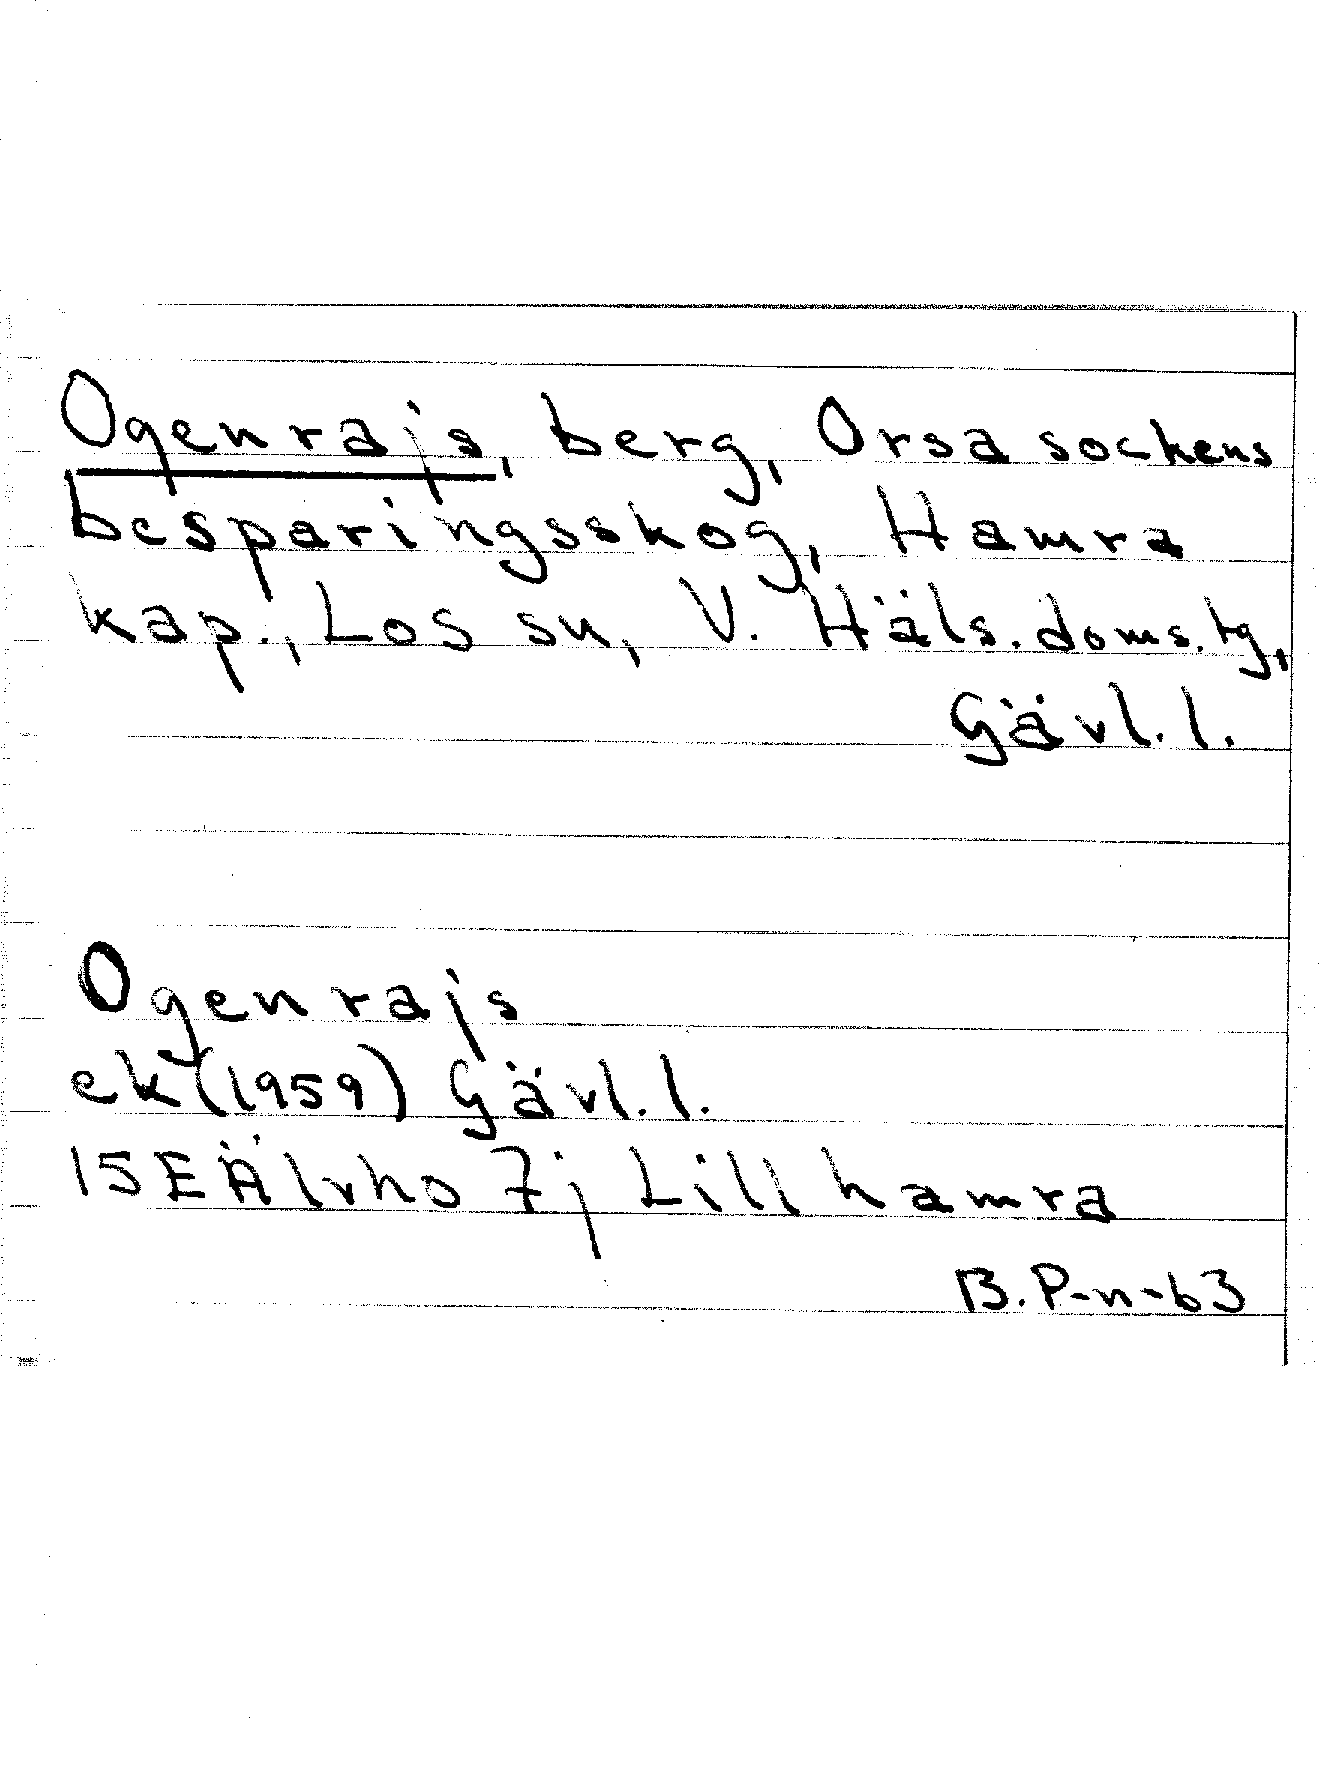 Ogenrajs, berg, Orsa sockens
besparingsskog, Hamra
kap., Los sn, V. Häls. doms. tg,
Gävl. l.
Ogenrajs
ek (1959) Gävl. l.
15E Älvho 7j Lillhamra
B. P-n-63